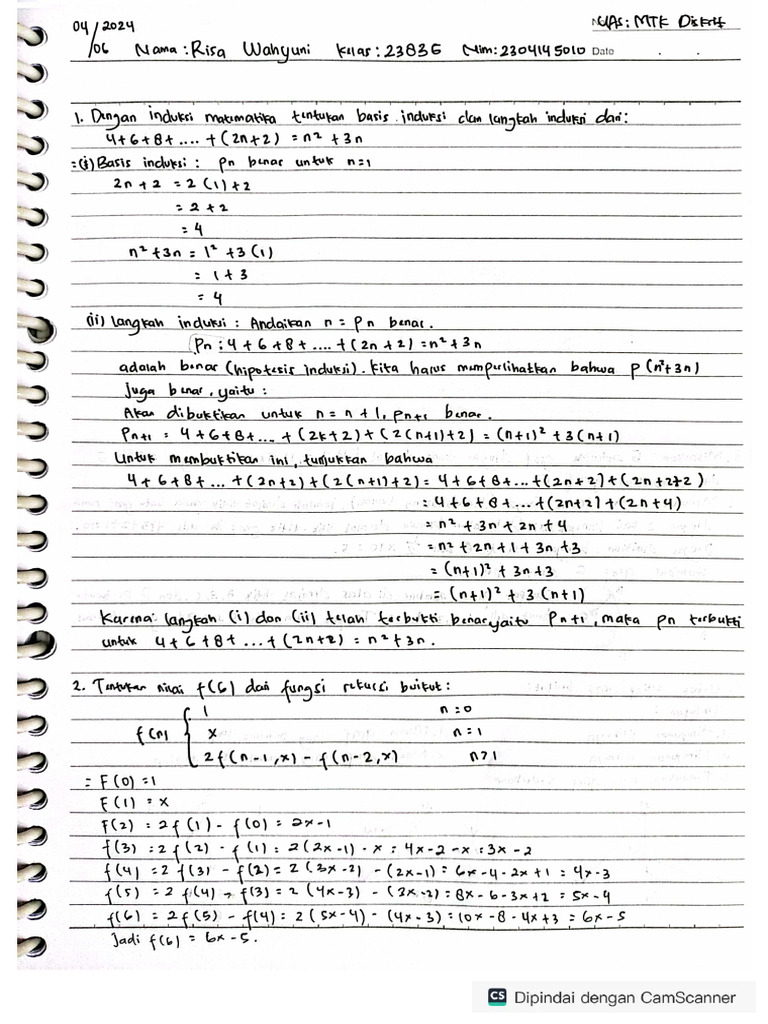 04/06 2024
UAS: MTK Diskrit
Nama : Risa Wahyuni Kelas : 23836 Nim: 2304145010 Date
1. Dengan induksi matematika tentukan basis induksi dan langkah induksi dari:
4+6+8+ .... +(2n+2) = n² + 3n
=(i) Basis induksi : Pn benar untuk n=1
2n+2 = 2(1)+2
= 2+2
= 4
n²+3n = 1² +3(1)
= 1+3
= 4
(ii) langkah induksi : Andaikan n = Pn benar.
Pn : 4+6+8+ .... +(2n+2) = n²+3n
adalah benar (hipotesis induksi). kita harus memperlihatkan bahwa P(n²+3n)
Juga benar, yaitu :
Akan dibuktikan untuk n = n+1, Pn+1 benar.
Pn+1 = 4+6+8+... +(2k+2)+(2(n+1)+2) = (n+1)² +3(n+1)
Untuk membuktikan ini, tunjukkan bahwa
4+6+8+... +(2n+2)+(2(n+1)+2) = 4+6+8+...+(2n+2)+(2n+2+2)
= 4+6+8+...+(2n+2)+(2n+4)
= n² + 3n + 2n + 4
= n² + 2n + 1 + 3n + 3
= (n+1)² + 3n+3
= (n+1)² + 3(n+1)
Karena langkah (i) dan (ii) telah terbukti benar, yaitu Pn+1, maka Pn terbukti
untuk 4+6+8+ ...+(2n+2) = n²+3n.
2. Tentukan nilai f(6) dari fungsi rekursi berikut :
1 n = 0
f(n) { x n = 1
2f(n-1,x) - f(n-2,x) n>1
= F(0) = 1
F(1) = x
F(2) = 2f(1) - f(0) = 2x-1
f(3) = 2f(2) - f(1) = 2(2x-1) - x = 4x-2-x = 3x-2
f(4) = 2f(3) - f(2) = 2(3x-2) - (2x-1) = 6x-4-2x+1 = 4x-3
f(5) = 2f(4) - f(3) = 2(4x-3) - (3x-2) = 8x-6-3x+2 = 5x-4
f(6) = 2f(5) - f(4) = 2(5x-4) - (4x-3) = 10x-8-4x+3 = 6x-5
Jadi f(6) = 6x-5.
CS Dipindai dengan CamScanner